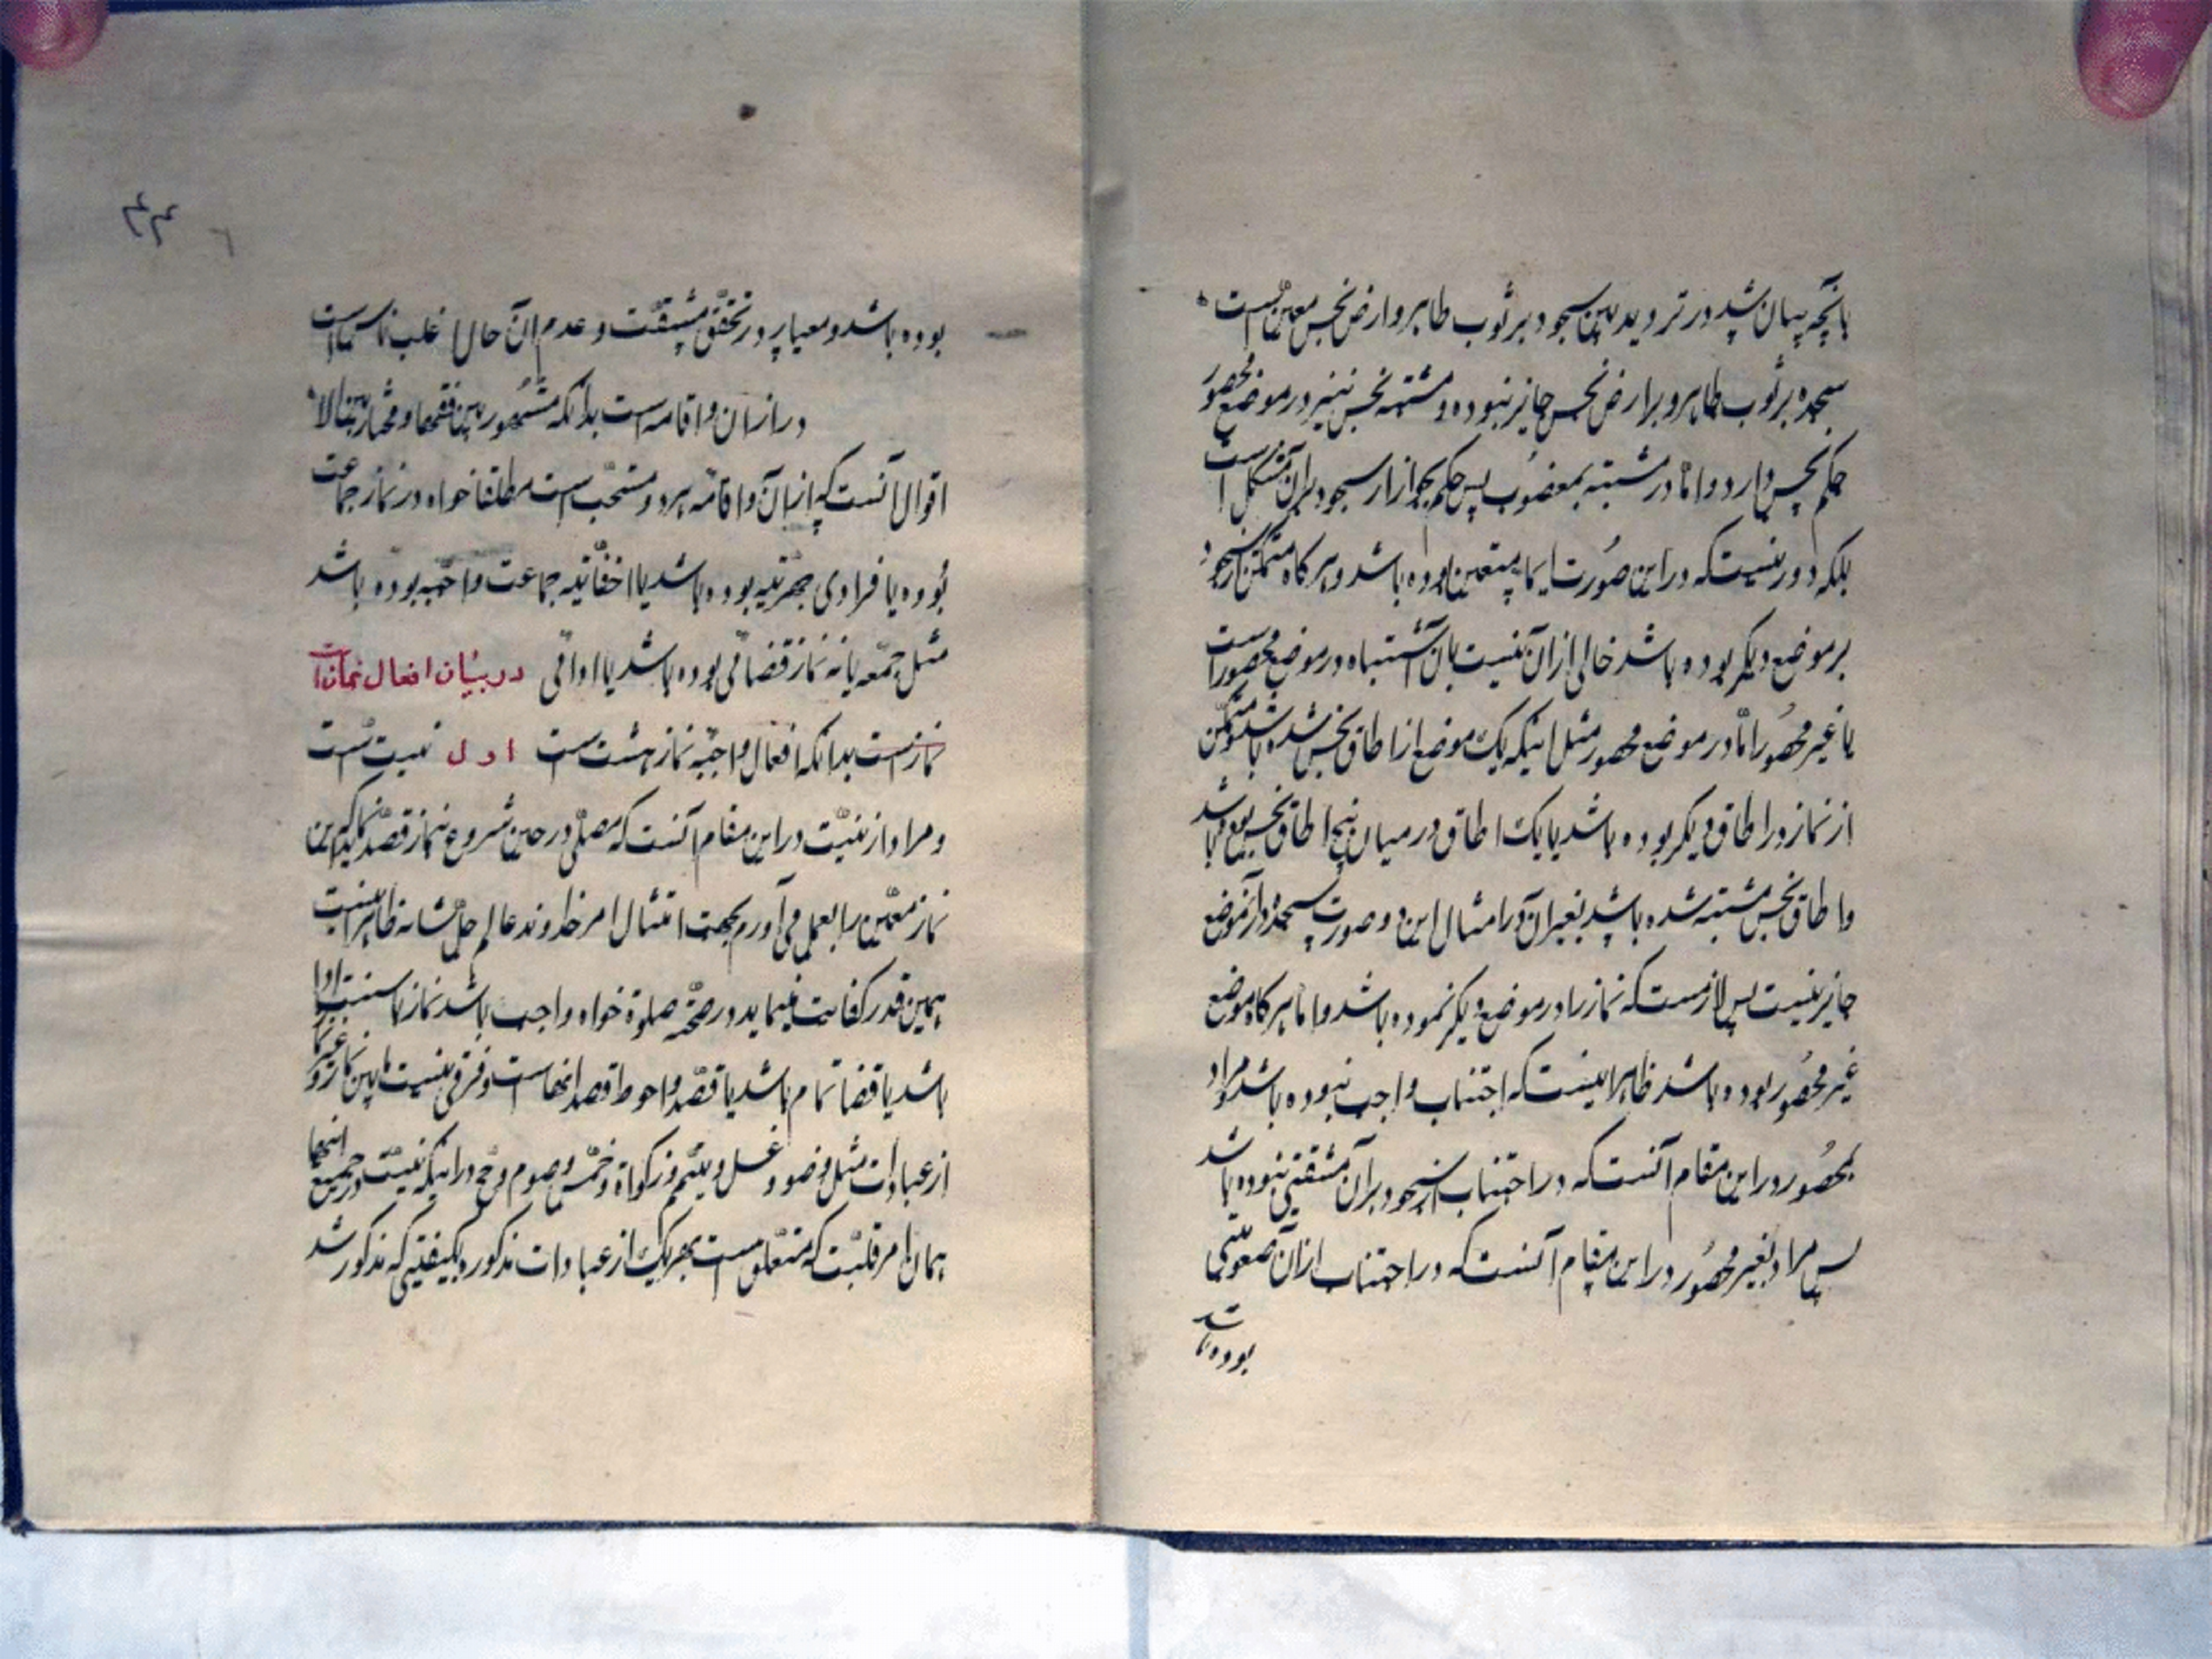 بآنچه بیان شد در تردید بین سجود بر ثوب طاهر و ارض نجس معین است
سجده بر ثوب طاهر و بر ارض نجس جایز نبوده و مشتبه نجس نیز در موضع محصور
حکم نجس دارد و امّا در مشتبه بمغصوب پس حکم بجواز سجود بران مشکل است
بلکه دور نیست که در این صورت ایما متعین بوده باشد و هرگاه متمکن از سجود
بر موضع دیگر بوده باشد خالی از ان نیست یا ان اشتباه در موضع محصور است
یا غیر محصُور امّا در موضع محصور مثل اینکه یک موضع از اطاق نجس شده باشد و متمکن
از نماز در اطاق دیگر بوده باشد یا یک اطاق در میان پنج اطاق نجس بوده باشد
و اطاق نجس مشتبه شده باشد بغیر آن در امثال این دو صورت سجده در آنموضع
جایز نیست پس لازمست که نماز را در موضع دیگر نموده باشد و اما هرگاه موضع
غیر محصُور بوده باشد ظاهر اینست که اجتناب واجب نبوده باشد و مراد
بمحصُور در این مقام آنست که در اجتناب از سجود بر آن مشقتی نبوده باشد
پس مراد بغیر محصُور در این مقام آنست که در اجتناب از ان صعوبتی
بوده باشد
۴۴
بوده باشد و معیار در تحقق مشقّت و عدم آن حال اغلب ناس است
در اذان و اقامه است بدانکه مشهور بین فقها و مختار بنابر
اقوال آنست که اذان و اقامه هر دو مستحبّ است مطلقا خواه در نماز جماعت
بُوده یا فرادی جهریّه بوده باشد یا اخفاتیّه جماعت واجبه بوده باشد
مثل جمعه یا نه نماز قضائی بوده باشد یا ادائی در بیان افعال نماز است
نماز است بدانکه افعال واجبه نماز هشت است اول نیت است
و مراد از نیّت در این مقام آنست که مصلّی در حین شروع بنماز قصد نماید که این
نماز معیّن را بعمل می آورم بجهت امتثال امر خداوند عالم جلّ شانه ظاهر اینست
همین قدر کفایت مینماید در صحّت صلوة خواه واجب باشد نماز یا سنت ادا
باشد یا قضا تمام باشد یا قصر و احوط قصد انها است و فرقی نیست مابین نماز و غیر نماز
از عبادات مثل وضو و غسل و تیمّم و زکواة و خمس و صوم و حج در اینکه نیّت در جمیع اینها
همان امر قلبیّت که متعلق است بهر یک از عبادات مذکوره بکیفیّتی که مذکور شد